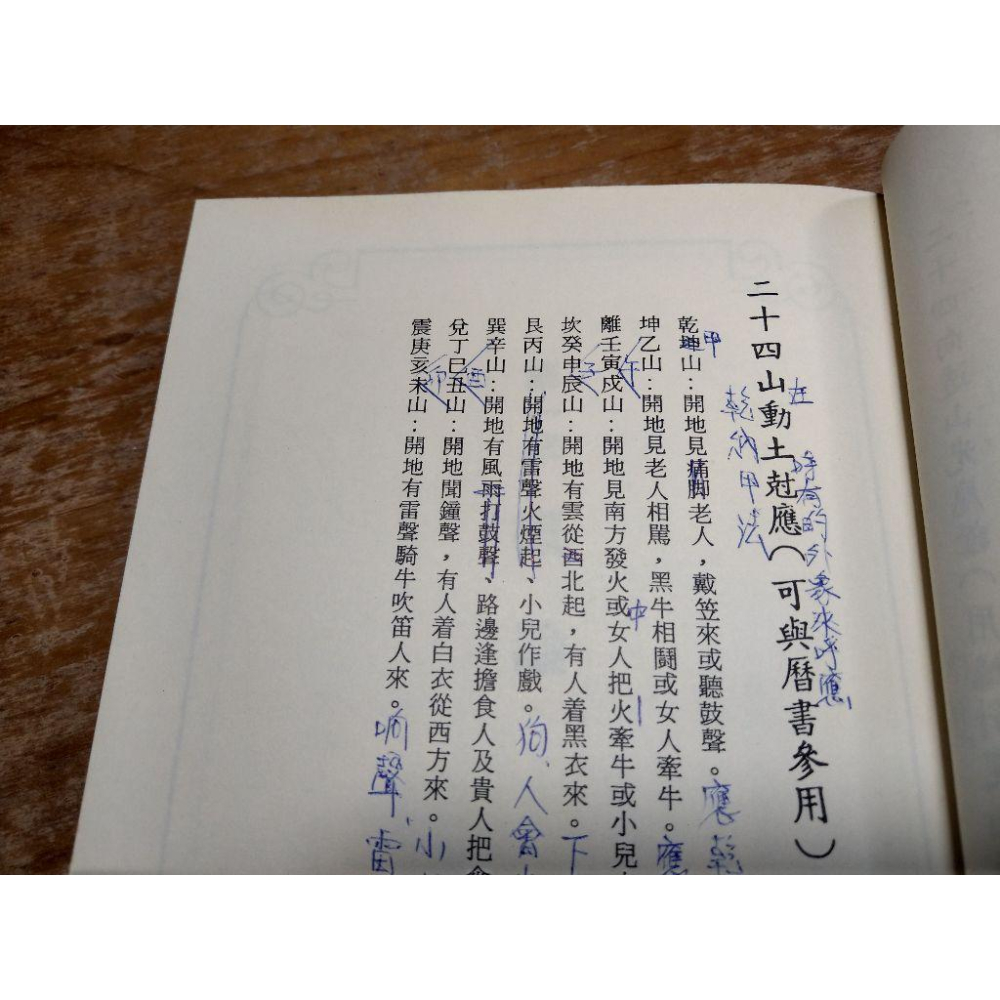 二十四山動土尅應（可與曆書參用）
在 時有的外象來呼應
乾坤山：開地見痛脚老人，戴笠來或聽鼓聲。應乾
甲
乾納甲法
坤乙山：開地見老人相駡，黑牛相鬪或女人牽牛。應
離壬寅戍山：開地見南方發火或女人把火牽牛或小兒
午
中
坎癸申辰山：開地有雲從西北起，有人着黑衣來。下
子
艮丙山：開地有雷聲火煙起、小兒作戲。狗、人會
巽辛山：開地有風雨打鼓聲、路邊逢擔食人及貴人把
兌丁巳丑山：開地聞鐘聲，有人着白衣從西方來。小
酉
震庚亥未山：開地有雷聲騎牛吹笛人來。响聲、雷
卯